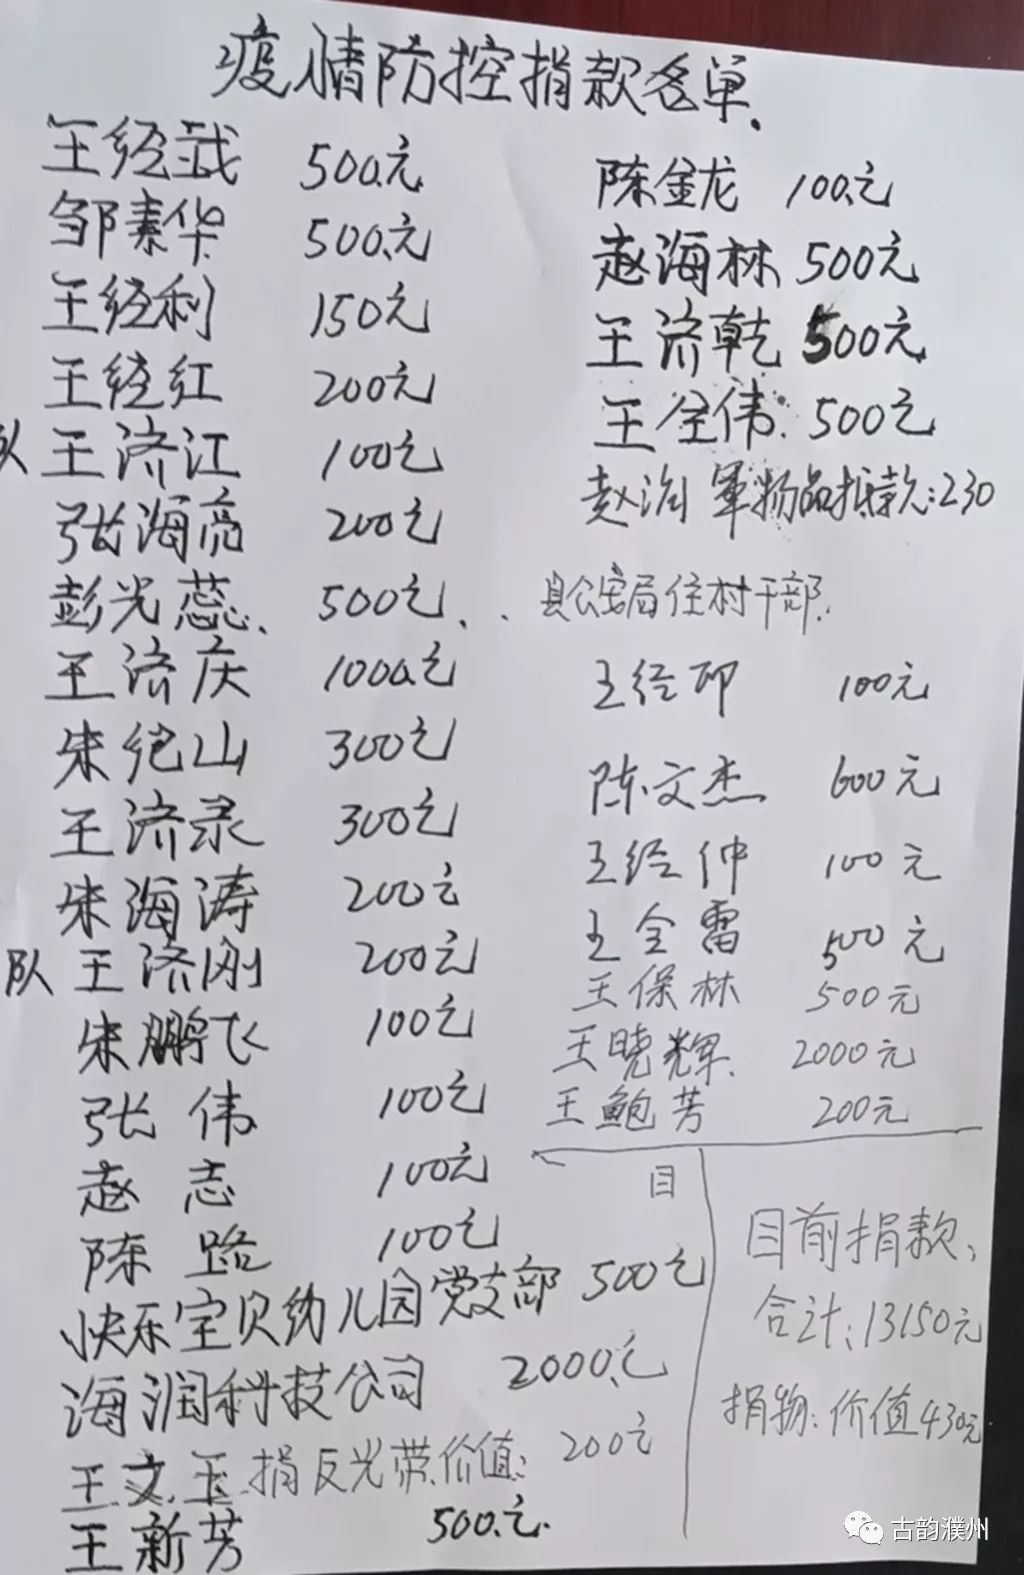 疫情防控捐款名单.
王经武 500元
邹素华 500元
王经利 150元
王经红 200元
队 王济江 100元
张海亮 200元
彭光蕊 500元
王济庆 1000元
朱纪山 300元
王济录 300元
朱海涛 200元
队 王济刚 200元
朱鹏飞 100元
张伟 100元
赵志 100元
陈路 100元
快乐宝贝幼儿园党支部 500元
海润科技公司 2000元
王文玉捐反光带价值: 200元
王新芳 500元
陈金龙 100元
赵海林 500元
王济乾 500元
王全伟 500元
赵海军物品抵款:230
县公安局住村干部.
王经印 100元
陈文杰 600元
王经仲 100元
王全雷 500元
王保林 500元
王晓辉 2000元
王鲍芳 200元
目
目前捐款,
合计:13150元
捐物:价值430元
古韵濮州